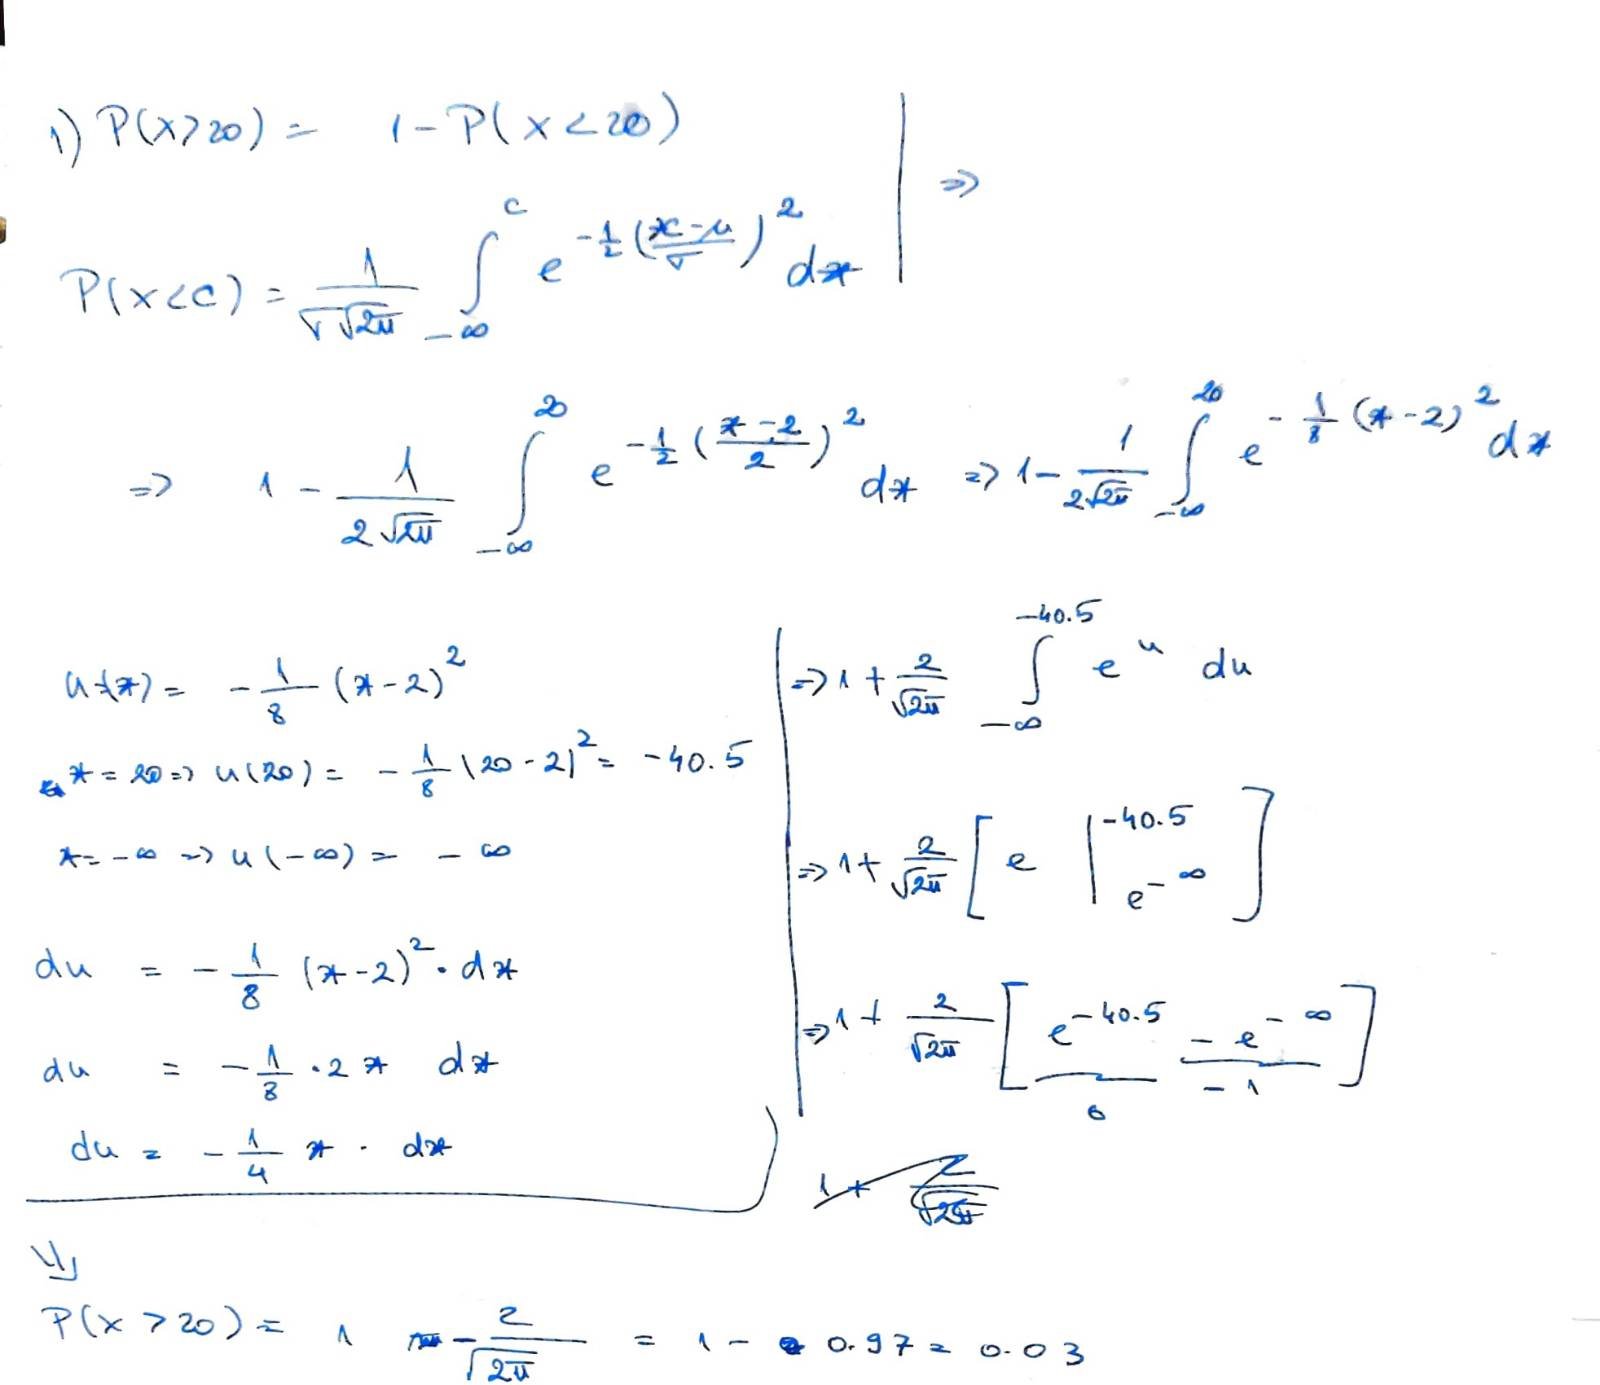 1) P(x>20) = 1 - P(x<20) | =>
P(x<c) = 1/(σ√2π) ∫_{-∞}^{c} e^{-1/2 ((x-μ)/σ)^2} dx
=> 1 - 1/(2√2π) ∫_{-∞}^{20} e^{-1/2 ((x-2)/2)^2} dx => 1 - 1/(2√2π) ∫_{-∞}^{20} e^{-1/8 (x-2)^2} dx
u(x) = -1/8 (x-2)^2
x = 20 => u(20) = -1/8 (20-2)^2 = -40.5
x = -∞ => u(-∞) = -∞
du = -1/8 (x-2)^2 · dx
du = -1/8 · 2x dx
du = -1/4 x · dx
=> 1 + 2/√2π ∫_{-∞}^{-40.5} e^u du
=> 1 + 2/√2π [ e |_{e^{-∞}}^{-40.5} ]
=> 1 + 2/√2π [ e^{-40.5} - e^{-∞} ]
0 -1
1 + 2/√2π
P(x>20) = 1 - 2/√2π = 1 - 0.97 = 0.03